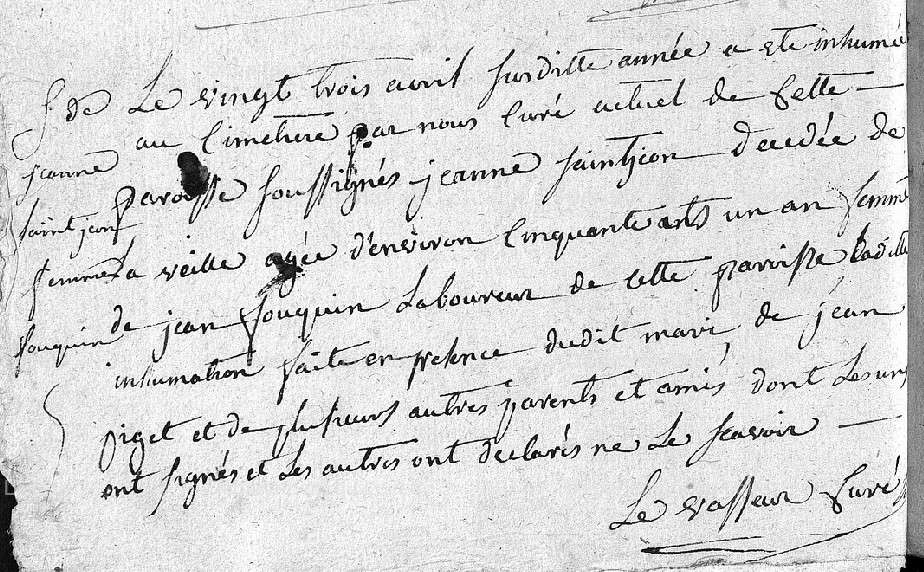 S. de
jeanne
saintjean
femme
fouquin
Le vingt trois avril susditte année a ete inhumé
au Cimetiere par nous Curé actuel de Cette
paroisse soussignés jeanne saintjean decedée de
la veille agée d'environ Cinquante ants un an femme
de jean fouquin Laboureur de Cette paroisse Laditte
inhumation faite en presence dudit mari, de jean
piget et de plusieurs autres parents et amis dont Les uns
ont signés et Les autres ont declarés ne Le scavoir
Le vasseur Curé